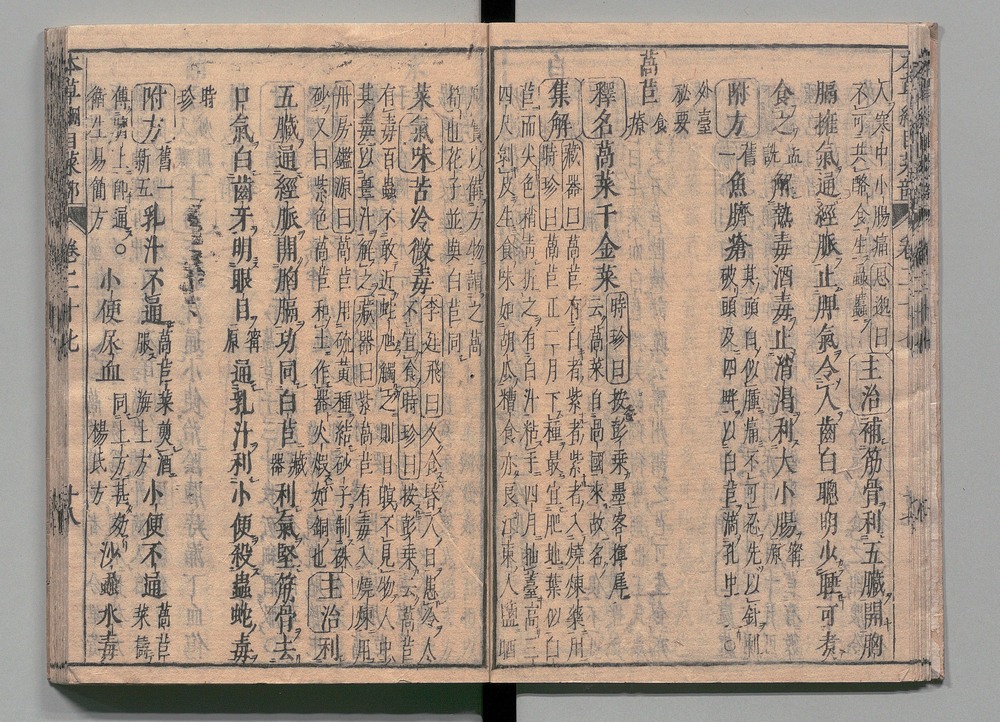 人寒中小腸痛思邈曰
不可共酪食生蟲䘌
主治補筋骨利五臟開胸
膈擁氣通經脈止脾氣令人齒白聰明少睡可煮
食之
血詵
解熱毒酒毒止消渴利大小腸
甯原
附方
舊一
魚臍瘡
其頭白似腫痛不可忍先以針刺
破頭及四畔以白苣滴孔中
外臺
祕要
萵苣
食療
釋名萵菜千金菜
時珍曰按彭乘墨客揮犀
云萵菜自咼國來故名
集解
藏器曰萵苣有白者紫者紫者入燒煉藥用
時珍曰萵苣正二月下種最宜肥地葉似白
苣而尖色稍青折之有白汁粘手四月抽薹高三
四尺剝皮生食味如胡瓜糟食亦良江東人鹽晒
壓實以備方物謂之萵
筍也花子並與白苣同
菜氣味苦冷微毒
李廷飛曰久食昏人目患冷人
不宜食時珍曰按彭乘云萵苣
有毒百蟲不敢近蛇虺觸之則目瞑不見物人中
其毒以薑汁解之藏器曰紫萵苣有毒入燒煉用
丹房鑑源曰萵苣用硫黃種結砂子制硃
砂又曰紫色萵苣和土作器火煆如銅也
主治利
五臟通經脈開胸膈功同白苣
藏器
利氣堅筋骨去
口氣白齒牙明眼目
甯原
通乳汁利小便殺蟲蛇毒
時
珍
附方
舊一
新五
乳汁不通
萵苣菜煎酒
服海上方
小便不通
萵苣
菜擣
傅臍上卽通
衛生易簡方
小便尿血
同上方甚效
楊氏方
沙蝨水毒
本草綱目菜部
卷二十七
十八